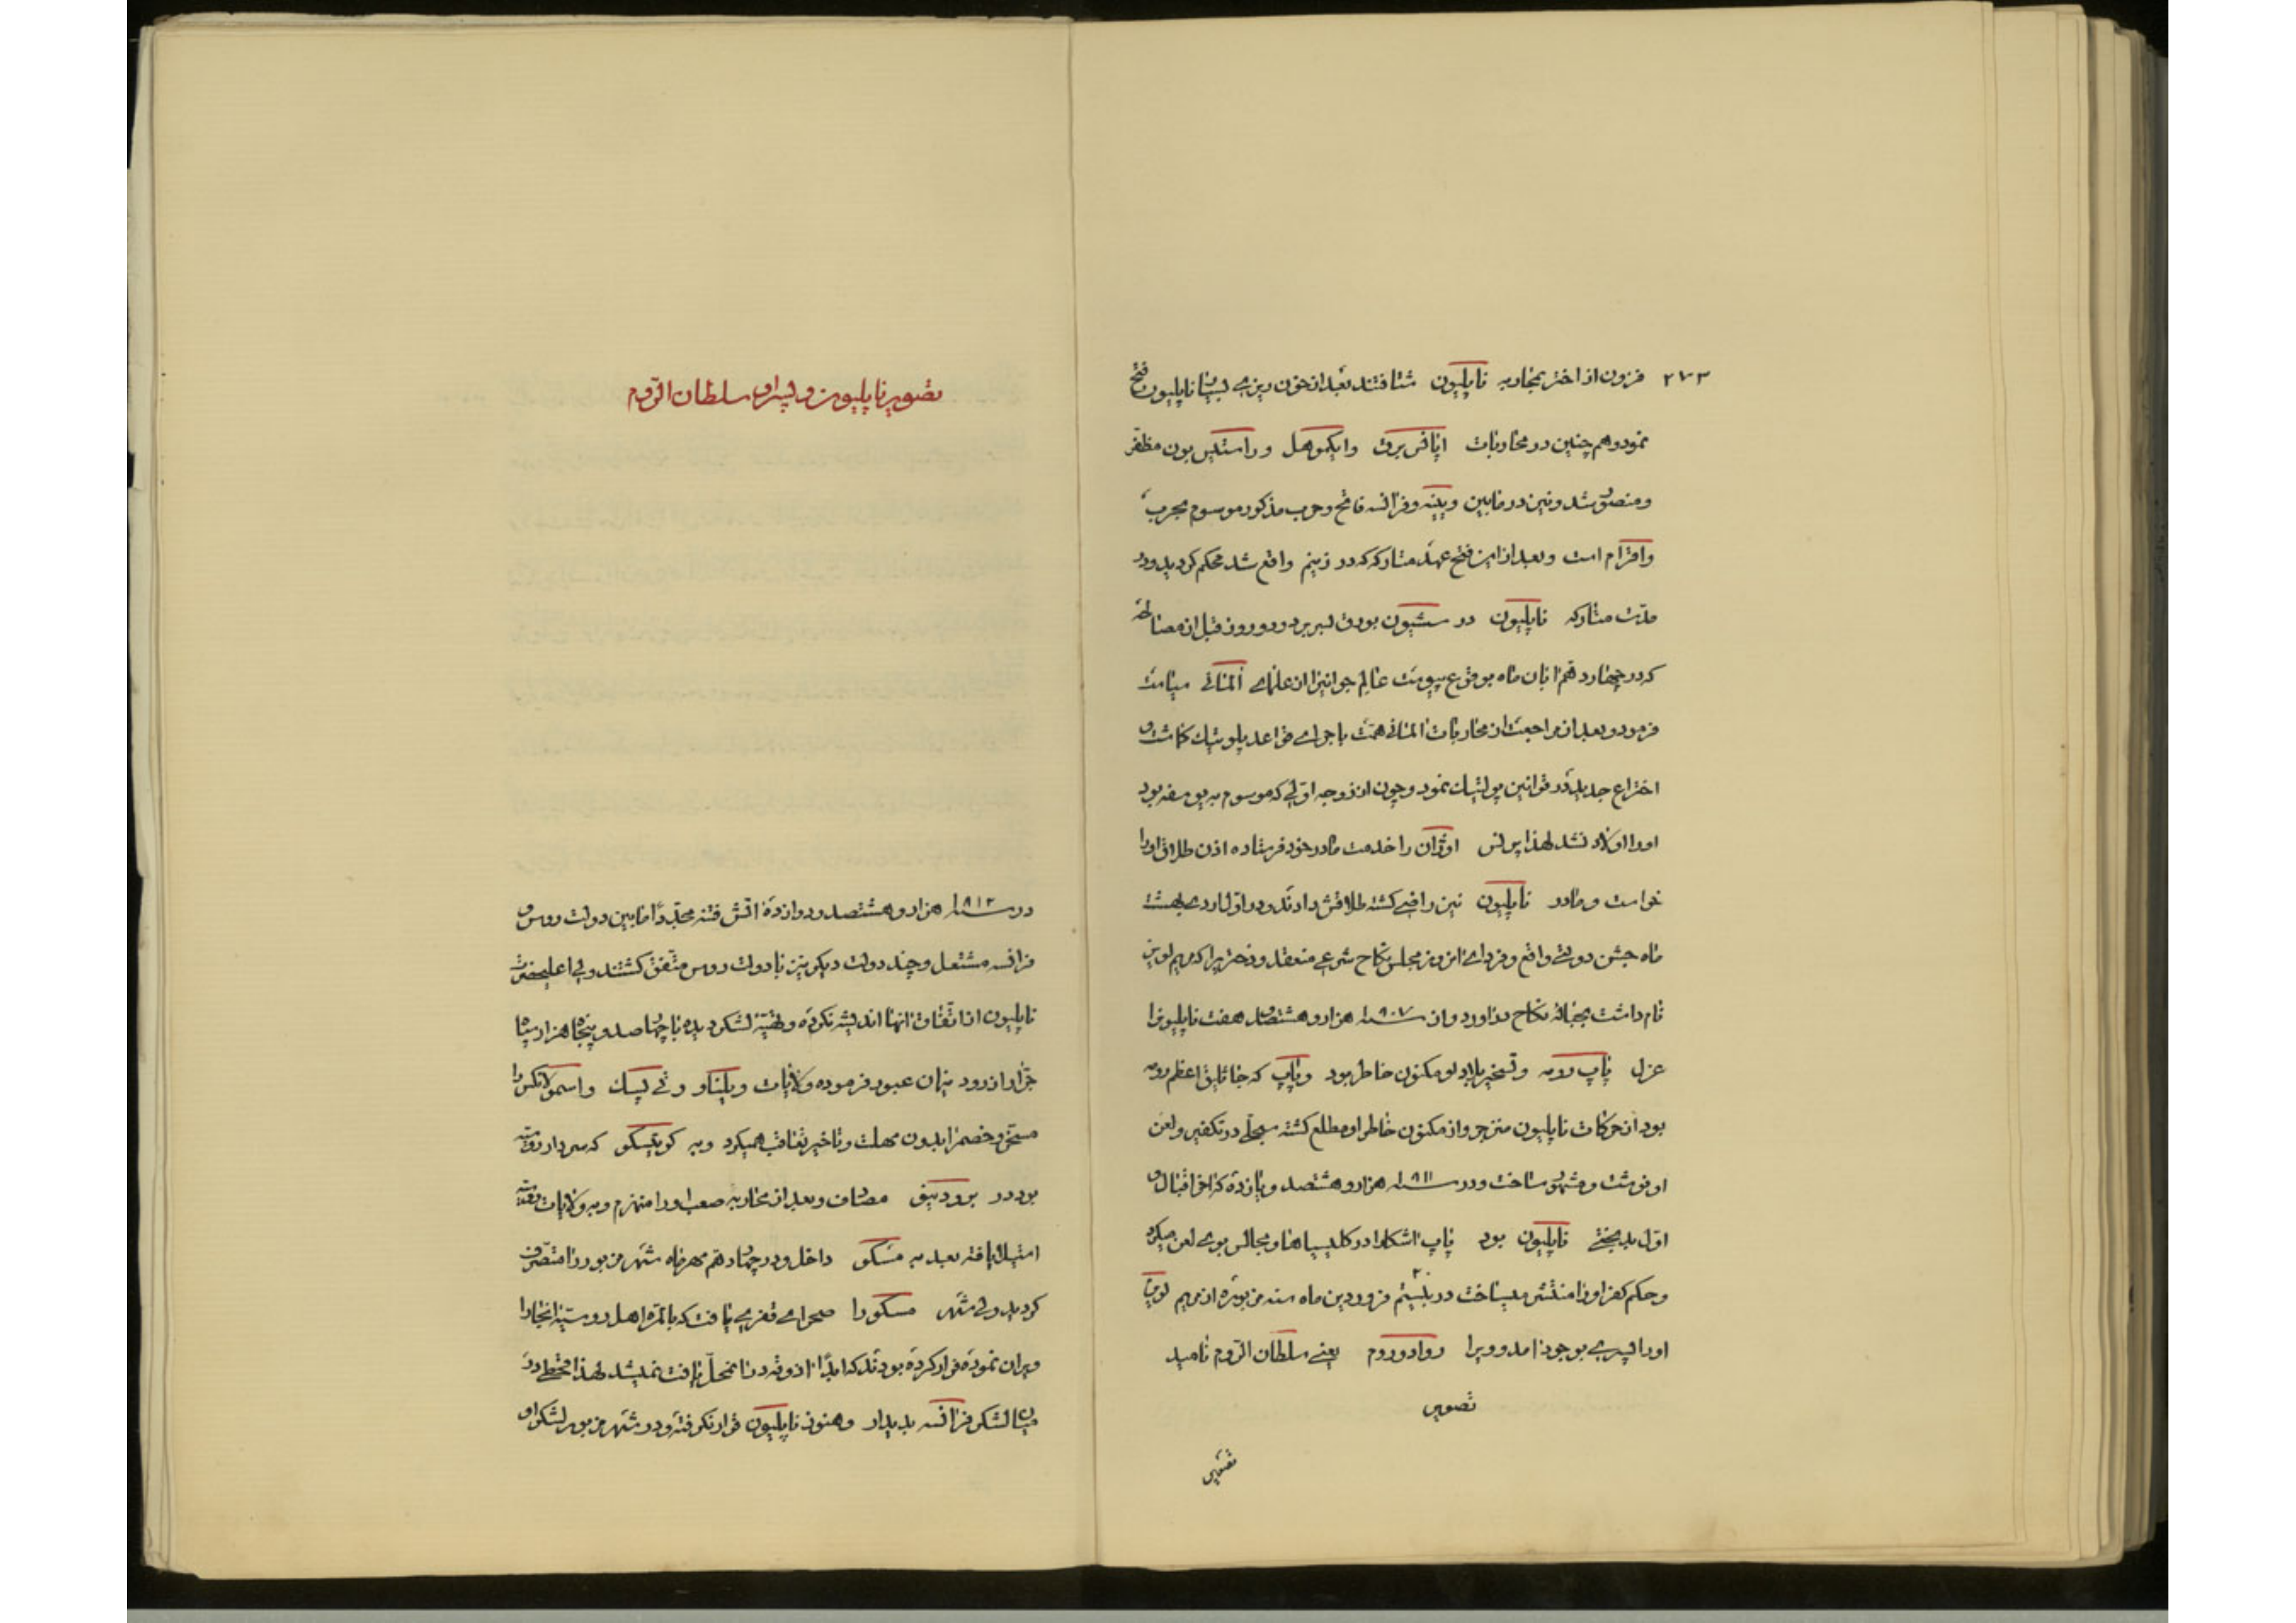 ۲۷۳ فزون از اختر بمحاربه ناپلیون شتافتند بعد از خون ریزی بسیار ناپلیون فتح
نمود و هم چنین در محاربات اپافس برق و ایکموهل و راستیس بون مظفر
و منصور شد و نیز در مابین وینه و فرانسه فاتح و حرب مذکور موسوم بحرب
واقرام است و بعد از این فتح عهد متارکه که در زینم واقع شد محکم کردید و در
مدت متارکه ناپلیون در سشبون بورق بسر برد و دو روز قبل از مصالحه
که در چهاردهم ابان ماه بوقوع پیوست عالم جوانیرا از علمای المانی سیاست
فرمود و بعد از مراجعت از محاربات المانی همت باجرای قواعد پلوتیک کماشت و
اختراع جدید در قوانین پولتیک نمود و چون از زوجه اولی که موسوم به یوسفه بود
اورا اولاد نشد لهذا پرنس اوژان را خدمت مادر خود فرستاده اذن طلاق اورا
خواست و مادر ناپلیون نیز راضی کشته طلاقش دادند و در اول اردی بهشت
ماه جشن دولتی واقع و فردای انروز مجلس نکاح شرعی منعقد و دختریرا که مریم لویز
نام داشت بحباله نکاح دراورد و از سنه ۱۸۰۷ هزار و هشتصد و هفت ناپلیونرا
عزل پاپ رومه و تسخیر بلاد او مکنون خاطر بود و پاپ که جاثلیق اعظم رومه
بود از حرکات ناپلیون منزجر و از مکنون خاطر او مطلع کشته سجلی در تکفیر و لعن
او نوشت و مشهور ساخت و در سنه ۱۸۱۱ هزار و هشتصد و یازده که اخر اقبال و
اول بدبختی ناپلیون بود پاپ اشکارا در کلیسیاها و مجالس بوی لعن میکرد
و حکم کفر اورا منتشر میساخت در بیستم فروردین ماه سنه مزبوره از مریم لویزا
اورا پسری بوجود امد و ویرا روادوروم یعنی سلطان الروم نامید
تصویر
تصویر
تصویر ناپلیون و پسر او سلطان الروم
در سنه ۱۸۱۲ هزار و هشتصد و دوازده اتش فتنه مجددا مابین دولت روس و
فرانسه مشتعل و چند دولت دیکر نیز با دولت روس متفق کشتند ولی اعلیحضرت
ناپلیون از اتفاق انها اندیشه نکرده و تهیه لشکر دیده با چهارصد و پنجاه هزار سپاه
جرار از رود نیمان عبور فرموده ولایات ویلناو و تی پسک و اسمولانکس را
مسخر و خصم را بدون مهلت و تاخیر تعاقب همیکرد و به کوتیسکو که سردار روسیه
بود در برودنیق مصاف و بعد از محاربه صعب اورا منهزم و به ولایات روسیه
استیلا یافته بعد به مسکو داخل و در چهاردهم مهر ماه شهر مزبور را متصرف
کردید ولی شهر مسکو را صحرای قفری یافت که بالمره اهل روسیه انجارا
ویران نموده فرار کرده بودند که ابدا اذوقه در انمحل یافت نمیشد لهذا قحطی در
میان لشکر فرانسه پدیدار و هنوز ناپلیون قرار نکرفته و در شهر مزبور لشکر او